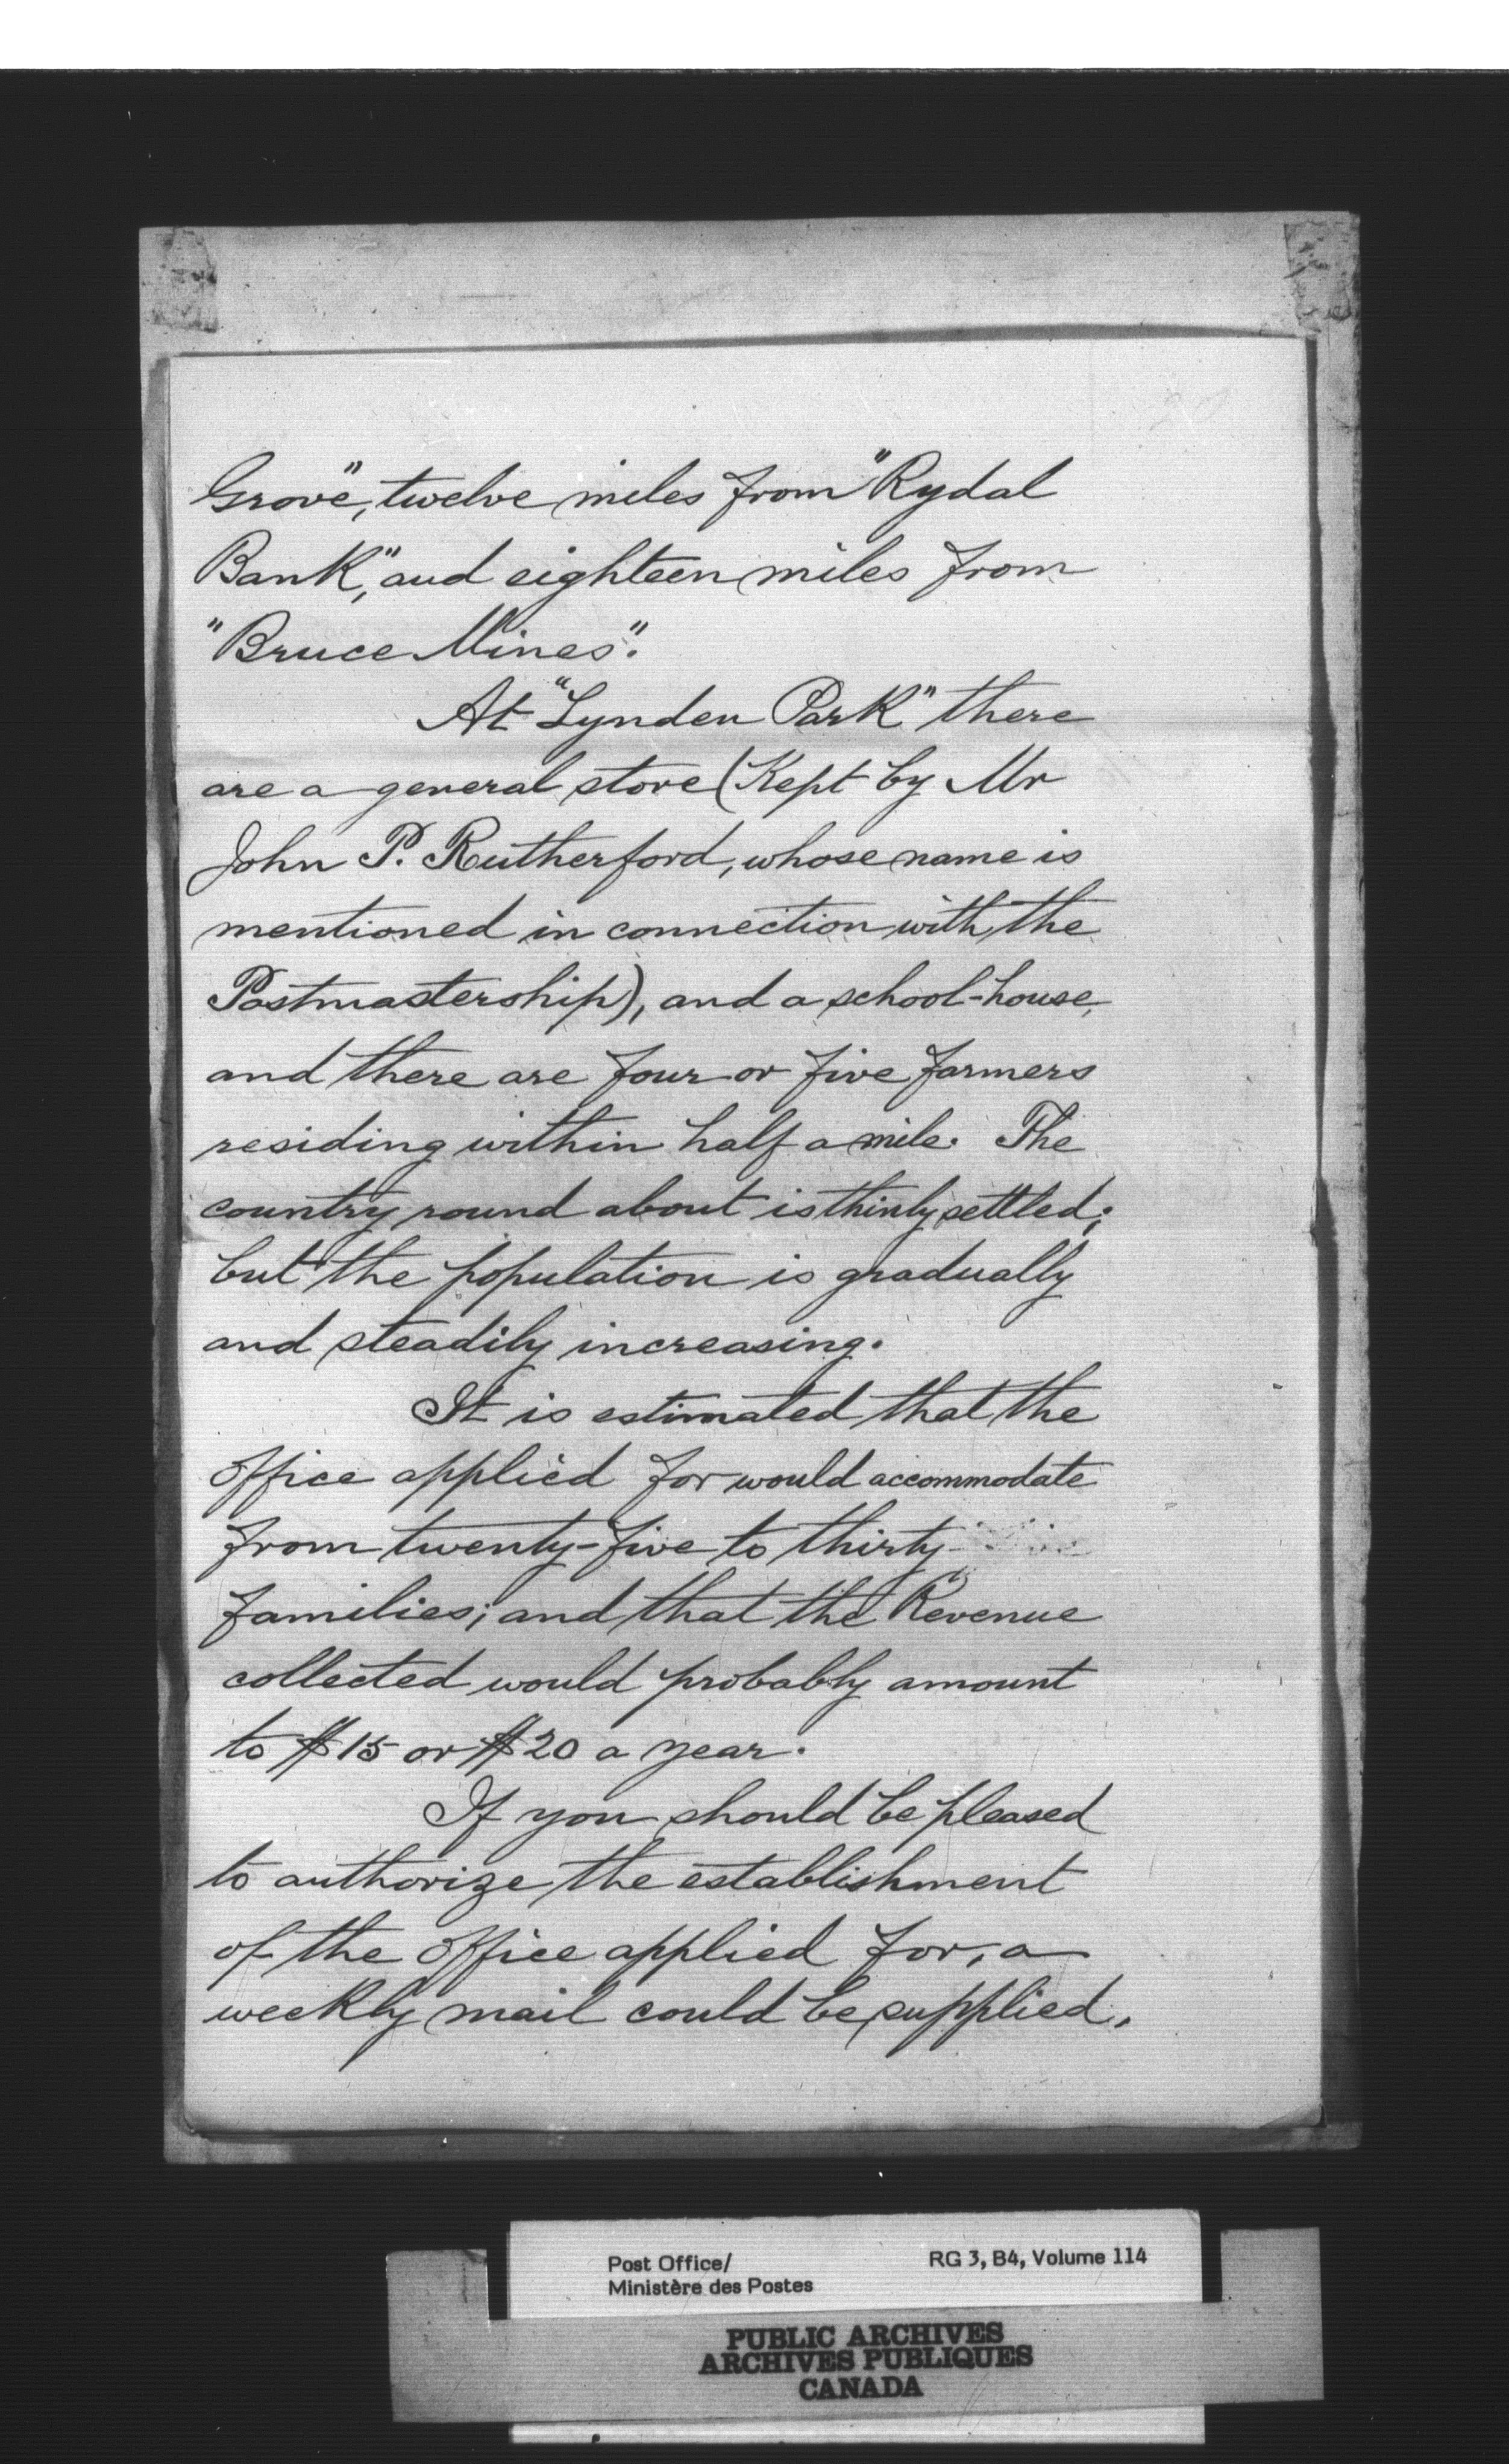 Grove", twelve miles from "Rydal
Bank", and eighteen miles from
"Bruce Mines".
At "Lynden Park" there
are a general store (Kept by Mr
John P. Rutherford, whose name is
mentioned in connection with the
Postmastership), and a school-house,
and there are four or five farmers
residing within half a mile. The
country round about is thinly settled;
but the population is gradually
and steadily increasing.
It is estimated that the
office applied for would accommodate
from twenty-five to thirty
families; and that the Revenue
collected would probably amount
to $15 or $20 a year.
If you should be pleased
to authorize the establishment
of the office applied for, a
weekly mail could be supplied,
Post Office/
Ministère des Postes
RG 3, B4, Volume 114
PUBLIC ARCHIVES
ARCHIVES PUBLIQUES
CANADA